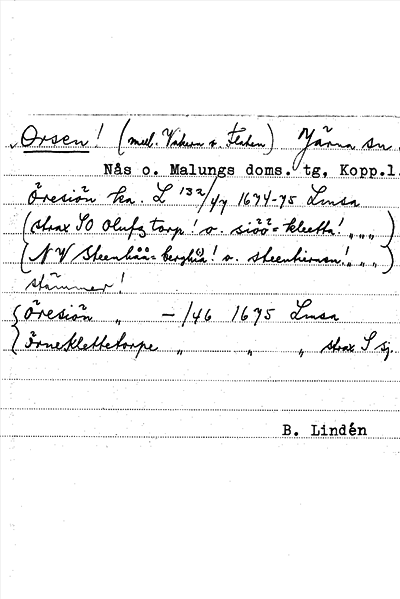 Orsen! (mell. Vakern o. Flaten) Järna sn.
Nås o. Malungs doms. tg, Kopp.l.
Öresiön ka. L 132/47 1674-75 Lmsa
(strax SO Olufz torp! o. siöö=kleetta! „ „ „)
(NV Steenbåå=bergha! o. steenhieron! „ „ „)
stämmer!
Öresiön „ — /46 1675 Lmsa
Örneklettetorpe „ „ „ strax S sj.
B. Lindén